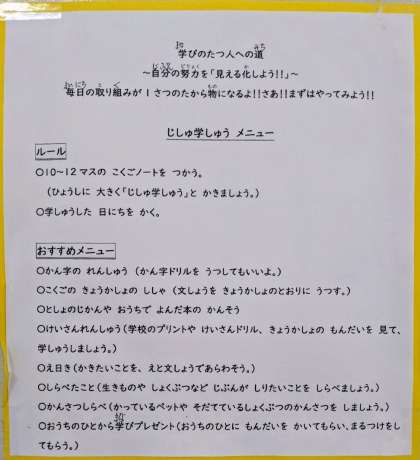 学びのたつ人への道
～自分の努力を「見える化しよう!!」～
毎日の取り組みが1さつのたから物になるよ!!さあ!!まずはやってみよう!!
じしゅ学しゅう メニュー
ルール
○10~12マスの こくごノートを つかう。
(ひょうしに 大きく「じしゅ学しゅう」と かきましょう。)
○学しゅうした 日にちを かく。
おすすめメニュー
○かん字の れんしゅう (かん字ドリルを うつしてもいいよ。)
○こくごの きょうかしょの ししゃ (文しょうを きょうかしょのとおりに うつす。)
○としょのじかんや おうちで よんだ本の かんそう
○けいさんれんしゅう(学校のプリントや けいさんドリル、きょうかしょの もんだいを 見て、
学しゅうしましょう。)
○え日き(かきたいことを、えと文しょうであらわそう。)
○しらべたこと(生きものや しょくぶつなど じぶんが しりたいことを しらべましょう。)
○かんさつしらべ(かっているペットや そだてているしょくぶつのかんさつを しましょう。)
○おうちのひとから学びプレゼント(おうちのひとに もんだいを かいてもらい、まるつけをし
てもらう。)